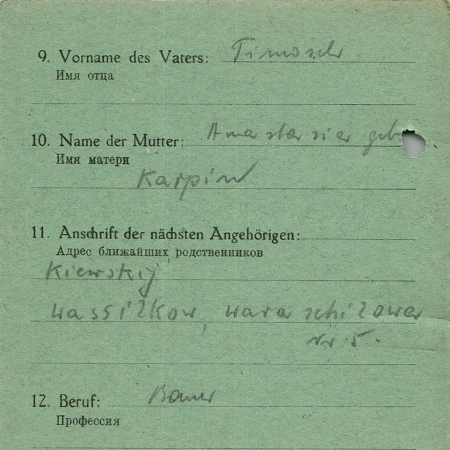 9. Vorname des Vaters: Timosch
Имя отца
10. Name der Mutter: Anastasia geb.
Имя матери
Karpin
11. Anschrift der nächsten Angehörigen:
Адрес ближайших родственников
Kiewskij
Wassilkow, Waraschilowa
Nr 5.
12. Beruf: Bauer
Профессия